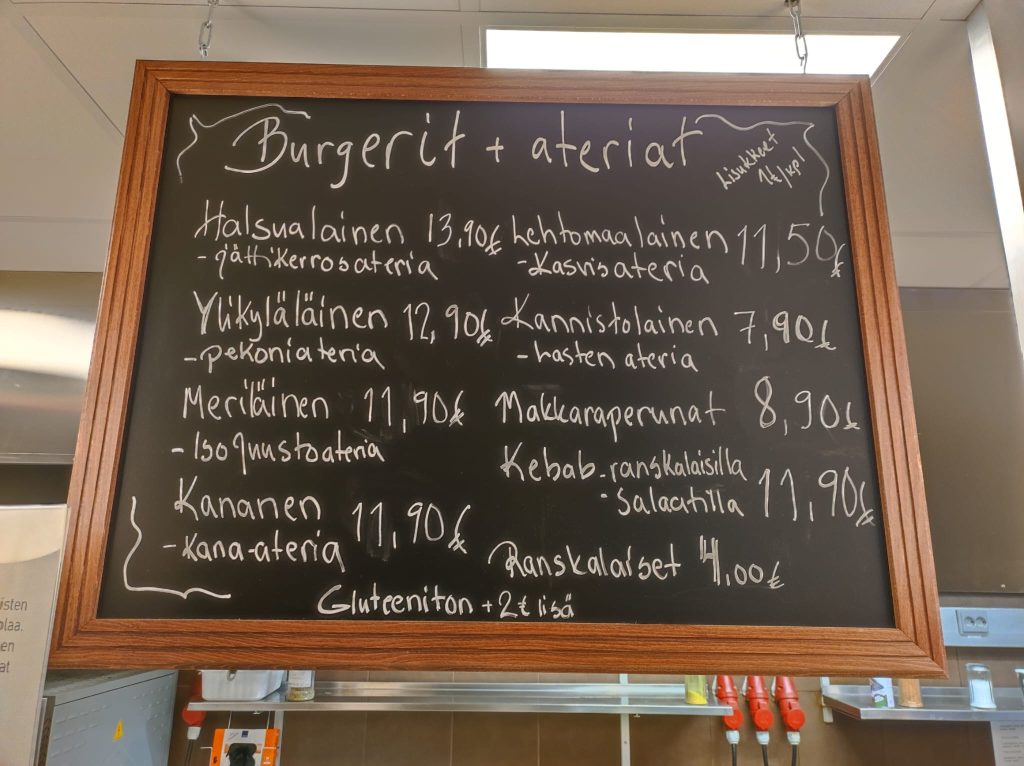 Burgerit + ateriat
Lisukkeet
1€/kpl
Halsualainen 13,90€
- jättikerrosateria
Ylikyläläinen 12,90€
- pekoniateria
Meriläinen 11,90€
- Iso juustoateria
Kananen
- kana-ateria 11,90€
Lehtomaalainen 11,50€
- Kasvisateria
Kannistolainen 7,90€
- Lasten ateria
Makkaraperunat 8,90€
Kebab - ranskalaisilla
- Salaatilla 11,90€
Ranskalaiset 4,00€
Gluteeniton + 2€ lisä